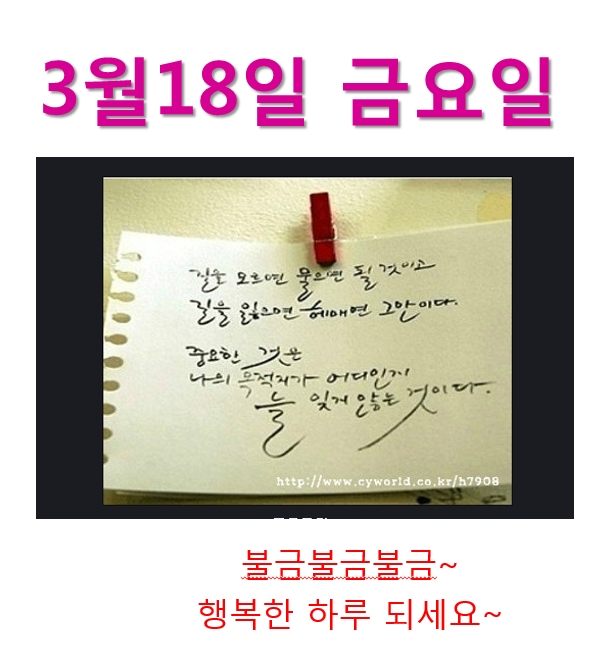 3월18일 금요일
길을 모르면 물으면 될 것이고
길을 잃으면 헤매면 그만이다.
중요한 것은
나의 목적지가 어디인지
늘 잊지 않는 것이다.
http://www.cyworld.co.kr/h7908
불금불금불금~
행복한 하루 되세요~